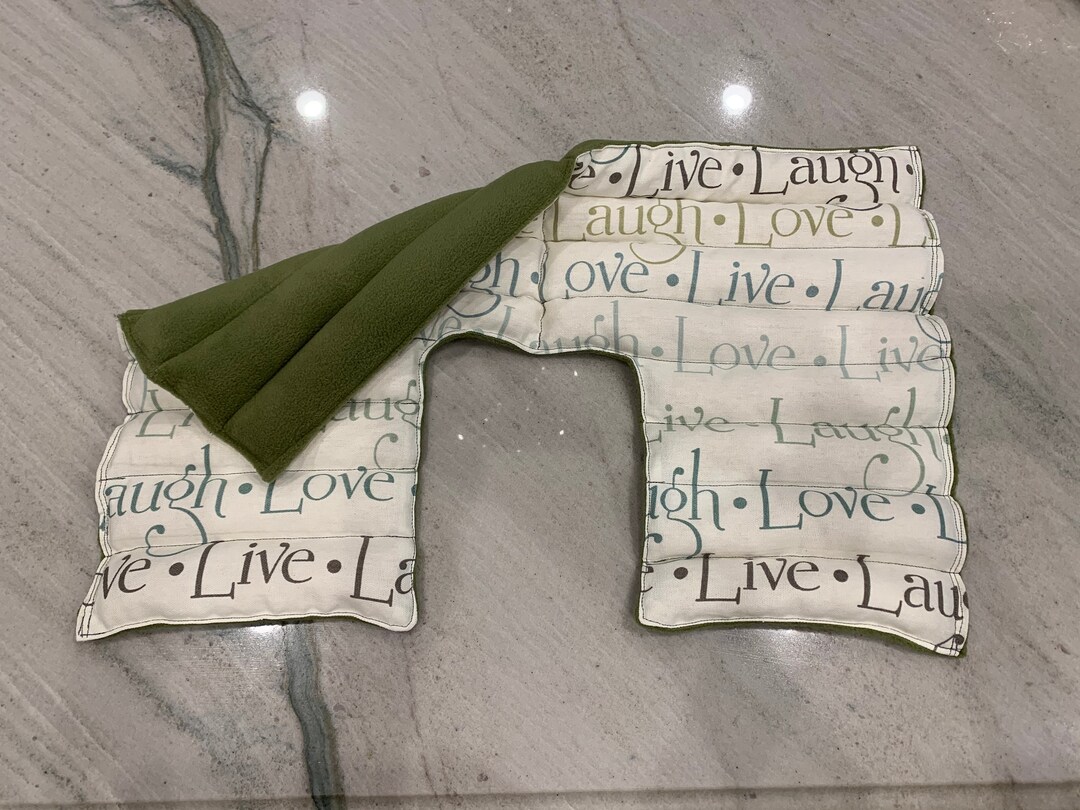 e • Live • Laugh •
Laugh • Love • L
gh • ove • Live • Laug
ve Laugh • Love • Live
L augh
ive - Laugh •
augh • Love •
ugh • Love • L
ve • Live • La
e • Live • Lau